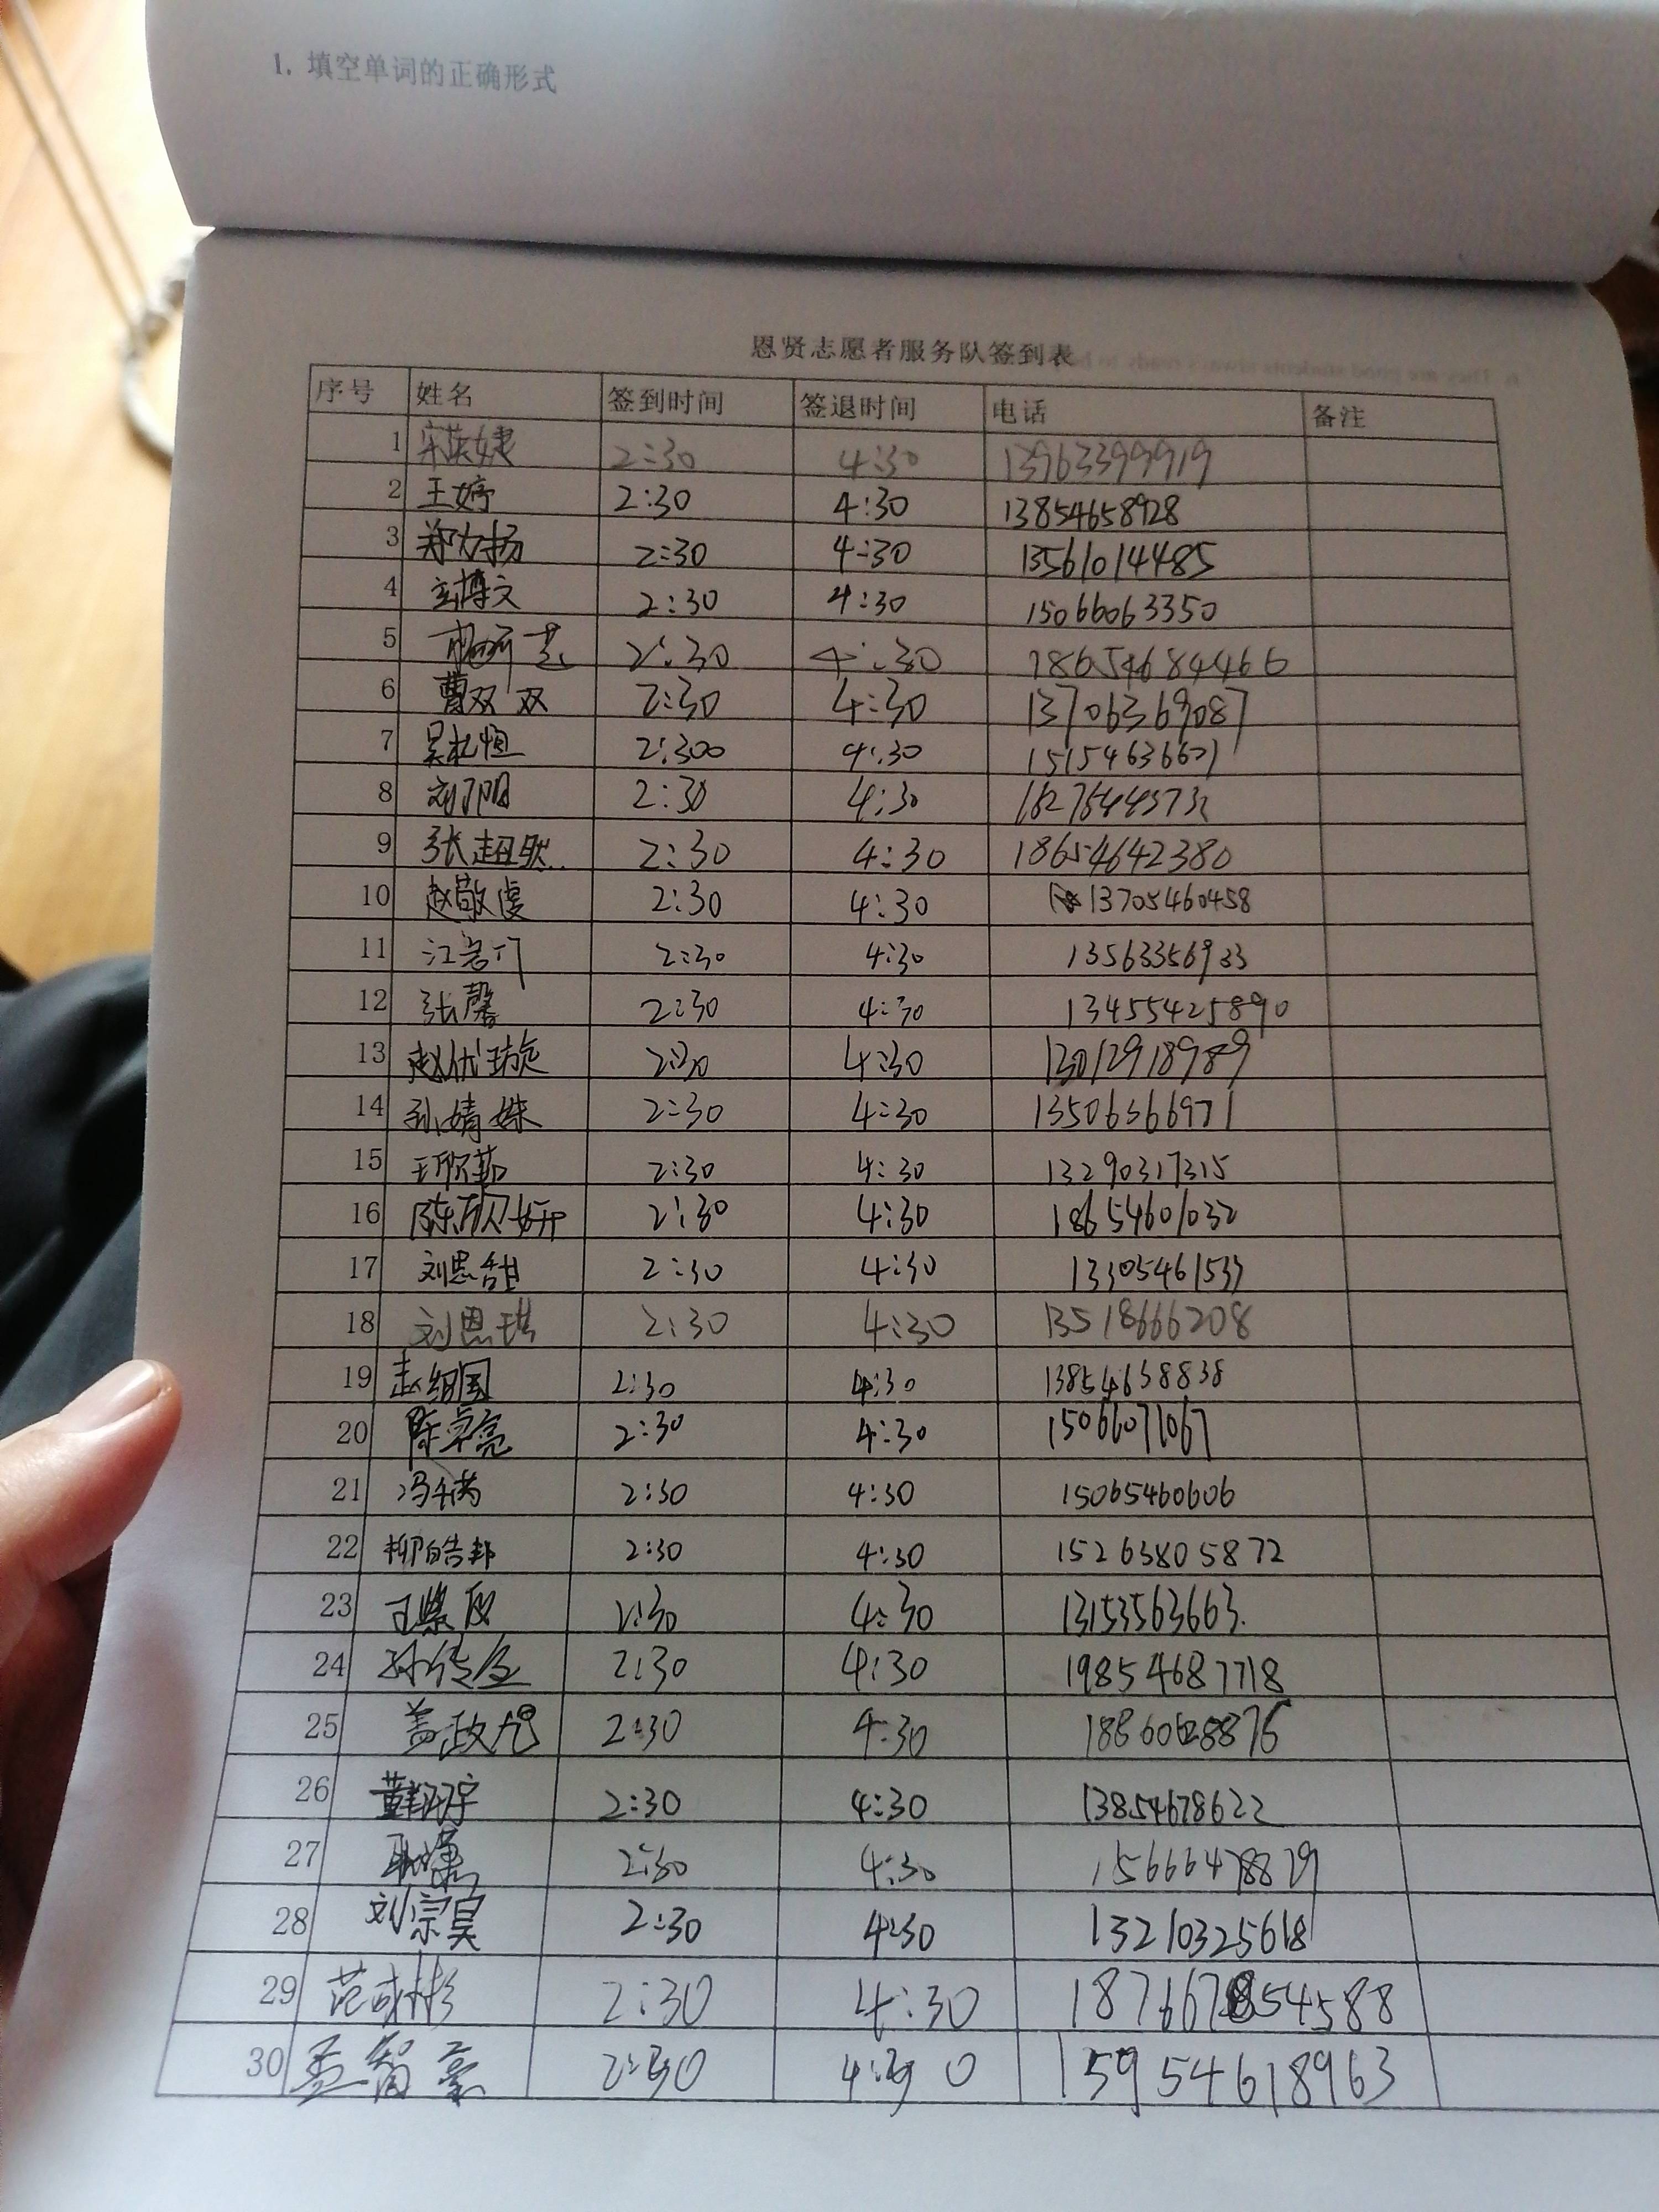 1. 填空单词的正确形式
恩贤志愿者服务队签到表
序号 姓名 签到时间 签退时间 电话 备注
1 宋英婕 2:30 4:30 13963399919
2 王婷 2:30 4:30 13854658928
3 郑力扬 2:30 4:30 13561014485
4 博文 2:30 4:30 15066063350
5 2:30 4:30 18654684466
6 曹双双 2:30 4:30 13706369087
7 2:300 4:30
8 2:30 4:30
9 张超然 2:30 4:30 18654642380
10 赵敬虔 2:30 4:30 13705460458
11 2:30 4:30 13563356933
12 张馨 2:30 4:30 13455425890
13 赵优璇 2:30 4:30 13012918989
14 孙婧姝 2:30 4:30 13506366971
15 2:30 4:30 13290317315
16 陈欣妍 2:30 4:30 18654601032
17 刘思甜 2:30 4:30 13305461533
18 刘恩琪 2:30 4:30 13518666208
19 2:30 4:30 13854658838
20 陈卓亮 2:30 4:30 15066071067
21 2:30 4:30 15065460606
22 柳皓邦 2:30 4:30 15263805872
23 2:30 4:30 13153563663
24 2:30 4:30 19854687718
25 2:30 4:30
26 2:30 4:30 13854678622
27 2:30 4:30 15666478829
28 刘宗昊 2:30 4:30 13210325618
29 范成彬 2:30 4:30
30 孟智豪 2:30 4:30 15954618963